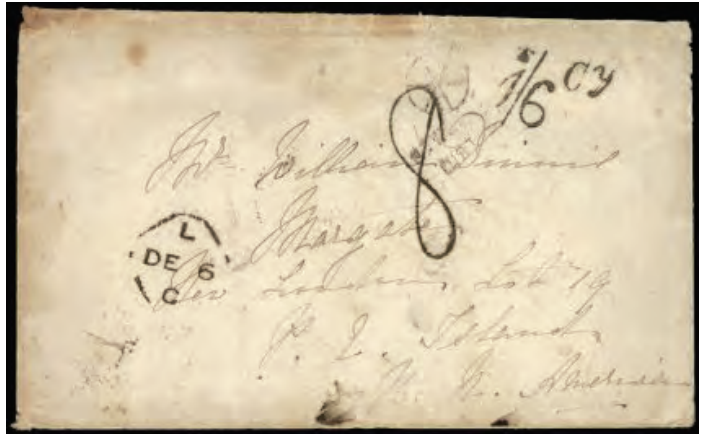 1/6 Cy
8
Mr. William
Margate
L
DE 6
C
New London, Lot 19
P. E. Island
N. America